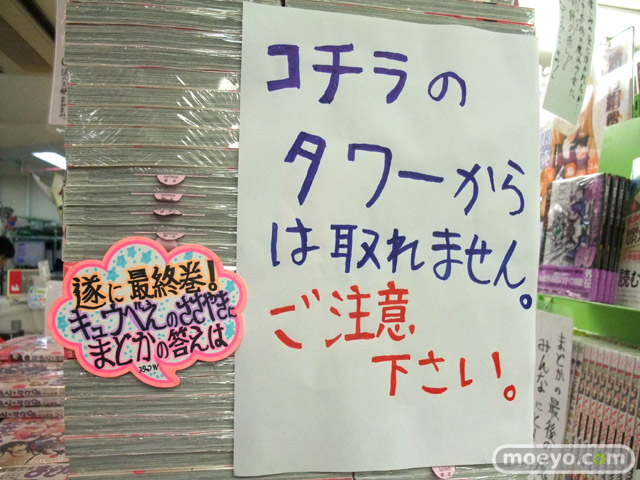 コチラの
タワーから
は取れません。
ご注意
下さい。
遂に最終巻!
キュゥべえのささやきに
まどかの答えは
まどかの最後の
みんなにと
読む
moeyo.com